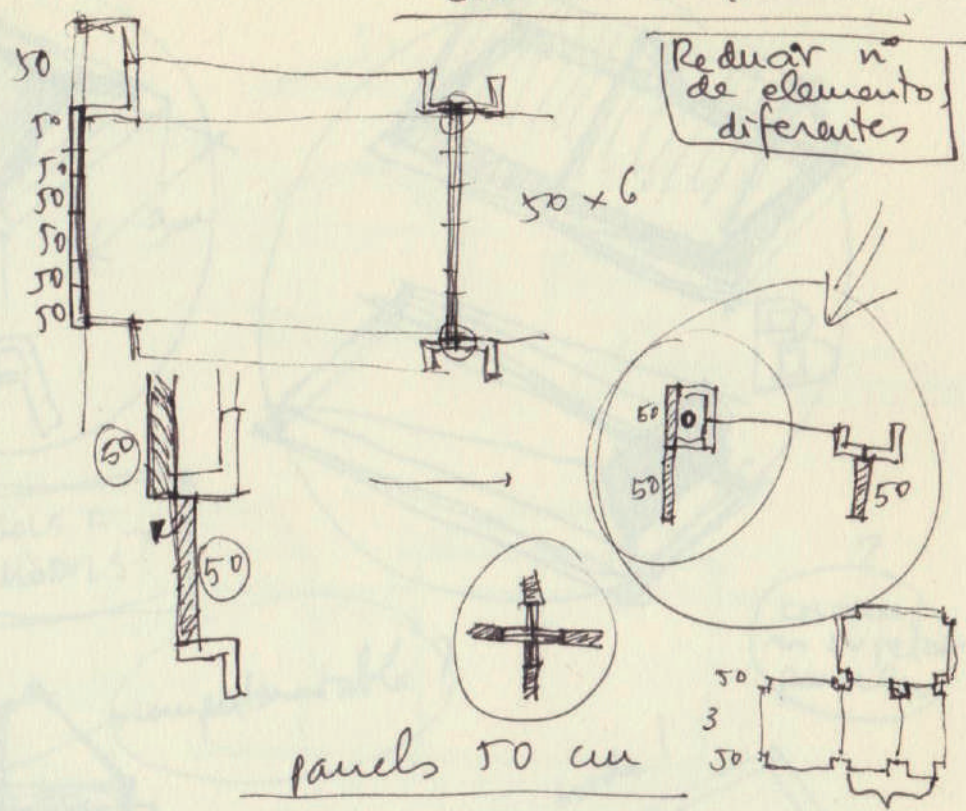 Reducir nº
de elementos
diferentes
50
50
50
50
50
50
50
50 x 6
50
50
50
50
50
?
50
3
50
panels 50 cm